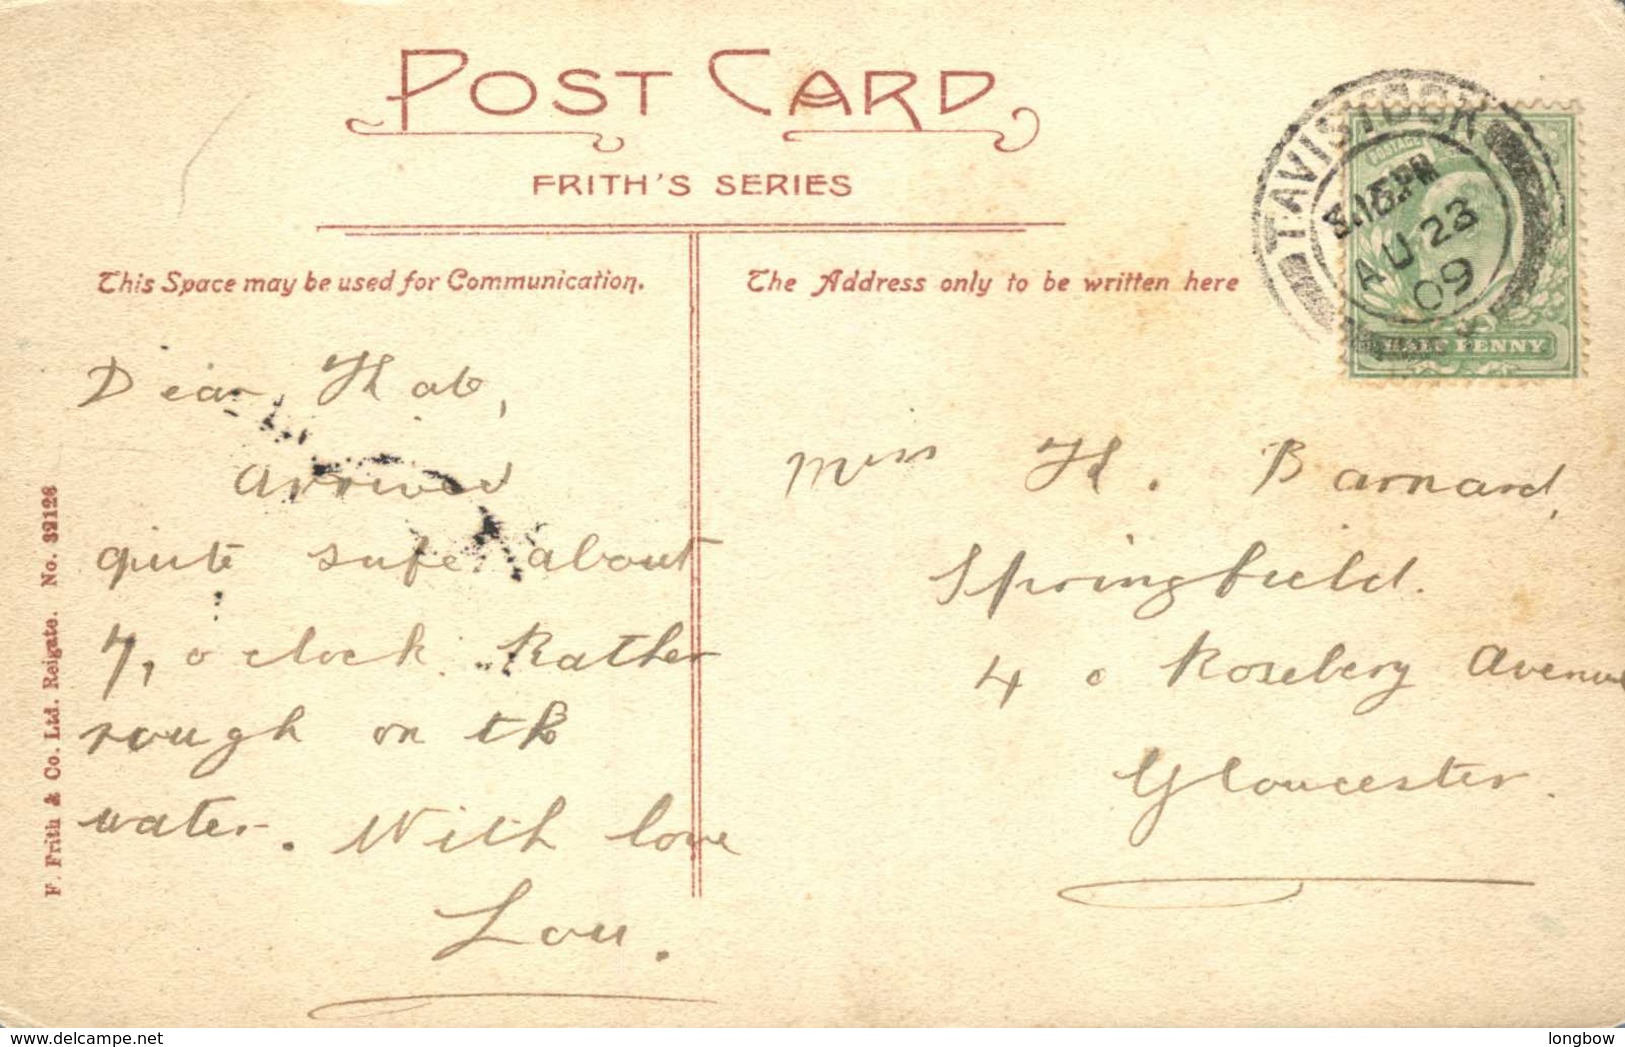 POST CARD
FRITH'S SERIES
This Space may be used for Communication.
The Address only to be written here
TAVISTOCK
.15PM
AU 23
09
POSTAGE
HALF PENNY
Dear
Arrived
quite safe about
7, o clock. Rather
rough on the
water. With love
Lou.
Miss H. Barnard,
Springfield.
4 Rosebery Avenue
Gloucester.
F. Frith & Co. Ltd. Reigate. No. 32126
www.delcampe.net
longbow